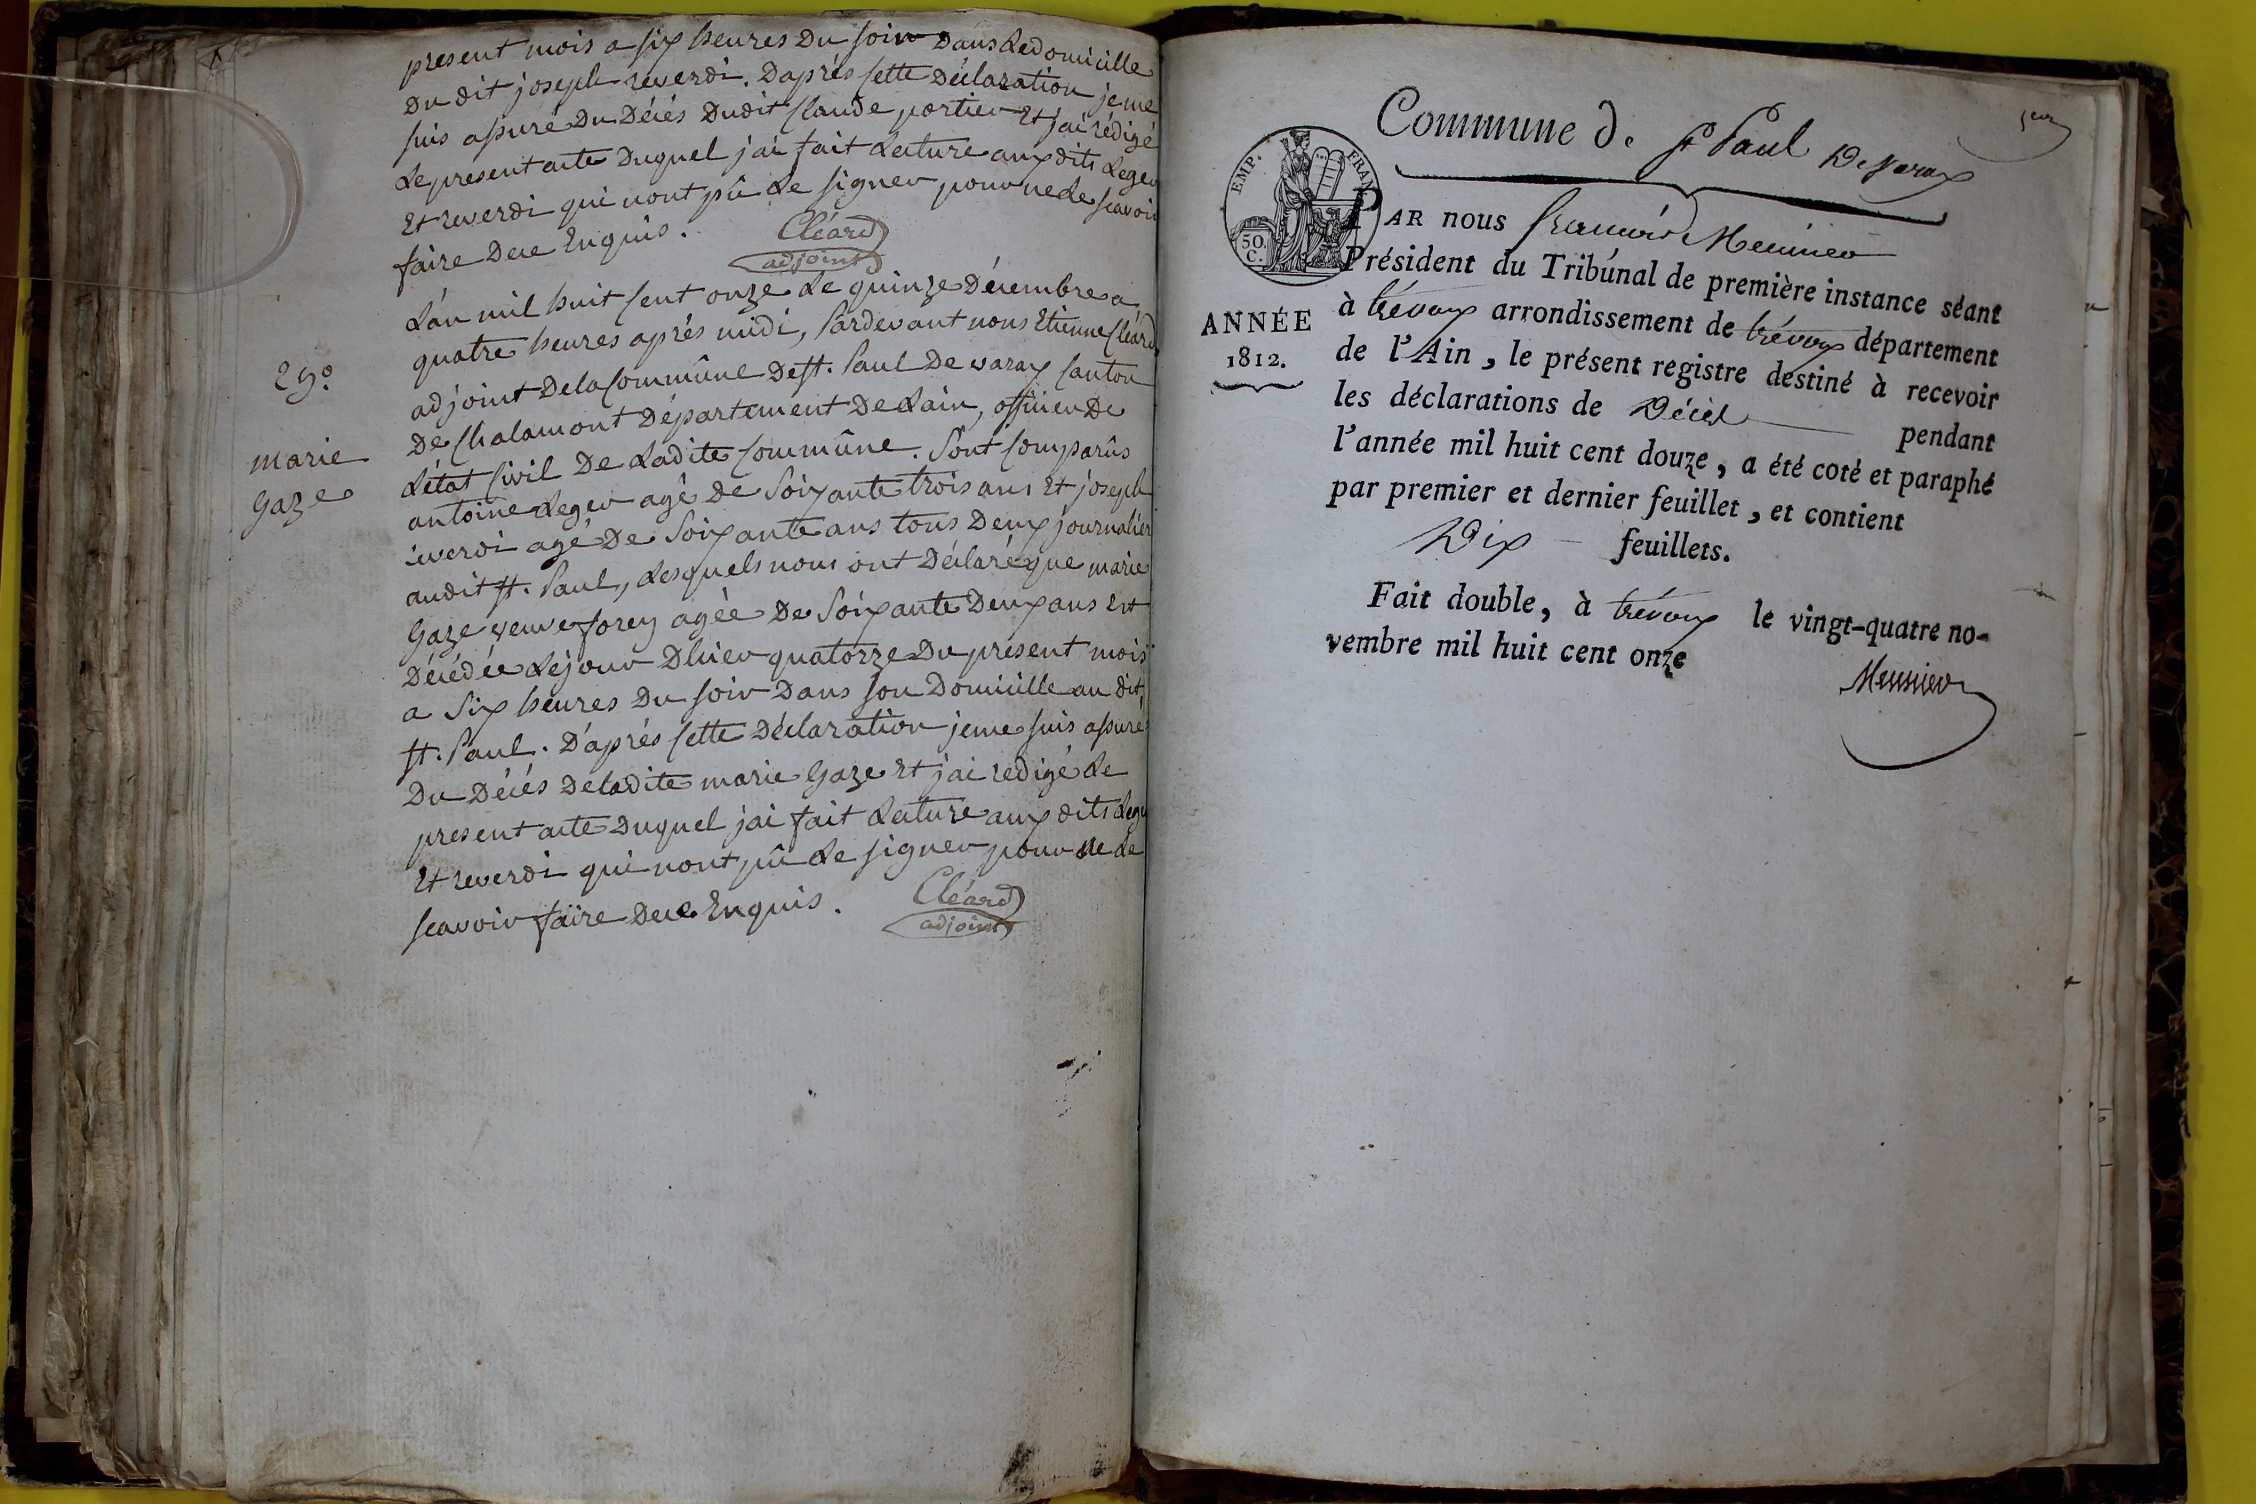 present mois a six heures Du soir Dans Le domicille
Du dit joseph reverdi. D'aprés Cette Déclaration je me
suis assuré Du Décés Dudit Claude portier Et j'ai rédigé
Le present acte Duquel j'ai fait Lecture aux dits Leger
Et reverdi qui n'ont pû Le signer pour ne Le scavoir
faire De ce Enquis.
Cléard
adjoint
L'an mil huit Cent onze Le quinze Décembre a
quatre heures aprés midi, Pardevant nous Etienne Cléard
adjoint De la Commûne De St. Paul De varax Canton
De Chalamont Département De L'ain, officier De
L'état Civil De Ladite Commûne. Sont Comparûs
antoine Leger agé De Soixante trois ans Et joseph
reverdi agé De Soixante ans tous Deux journaliers
audit St. Paul, Lesquels nous ont Déclaré que marie
Gaze veuve forey agée De Soixante Deux ans Est
Décédée Le jour D'hier quatorze Du present mois
a Six heures Du soir Dans son Domicille au dit
St. Paul. D'aprés Cette Déclaration je me suis assuré
Du Décés De ladite marie Gaze Et j'ai redigé Le
present acte Duquel j'ai fait Lecture aux dits Leger
Et reverdi qui n'ont pû Le signer pour ne Le
scavoir faire De ce Enquis.
Cléard
adjoint
marie
Gaze
Commune de St Paul De Varax
EMP. FRAN.
50.
C.
ANNÉE
1812.
PAR nous françois Meunier
Président du Tribunal de première instance séant
à trévoux arrondissement de trévoux département
de l'Ain, le présent registre destiné à recevoir
les déclarations de Décès pendant
l'année mil huit cent douze, a été coté et paraphé
par premier et dernier feuillet, et contient
Dix feuillets.
Fait double, à trévoux le vingt-quatre no-
vembre mil huit cent onze
Meunier